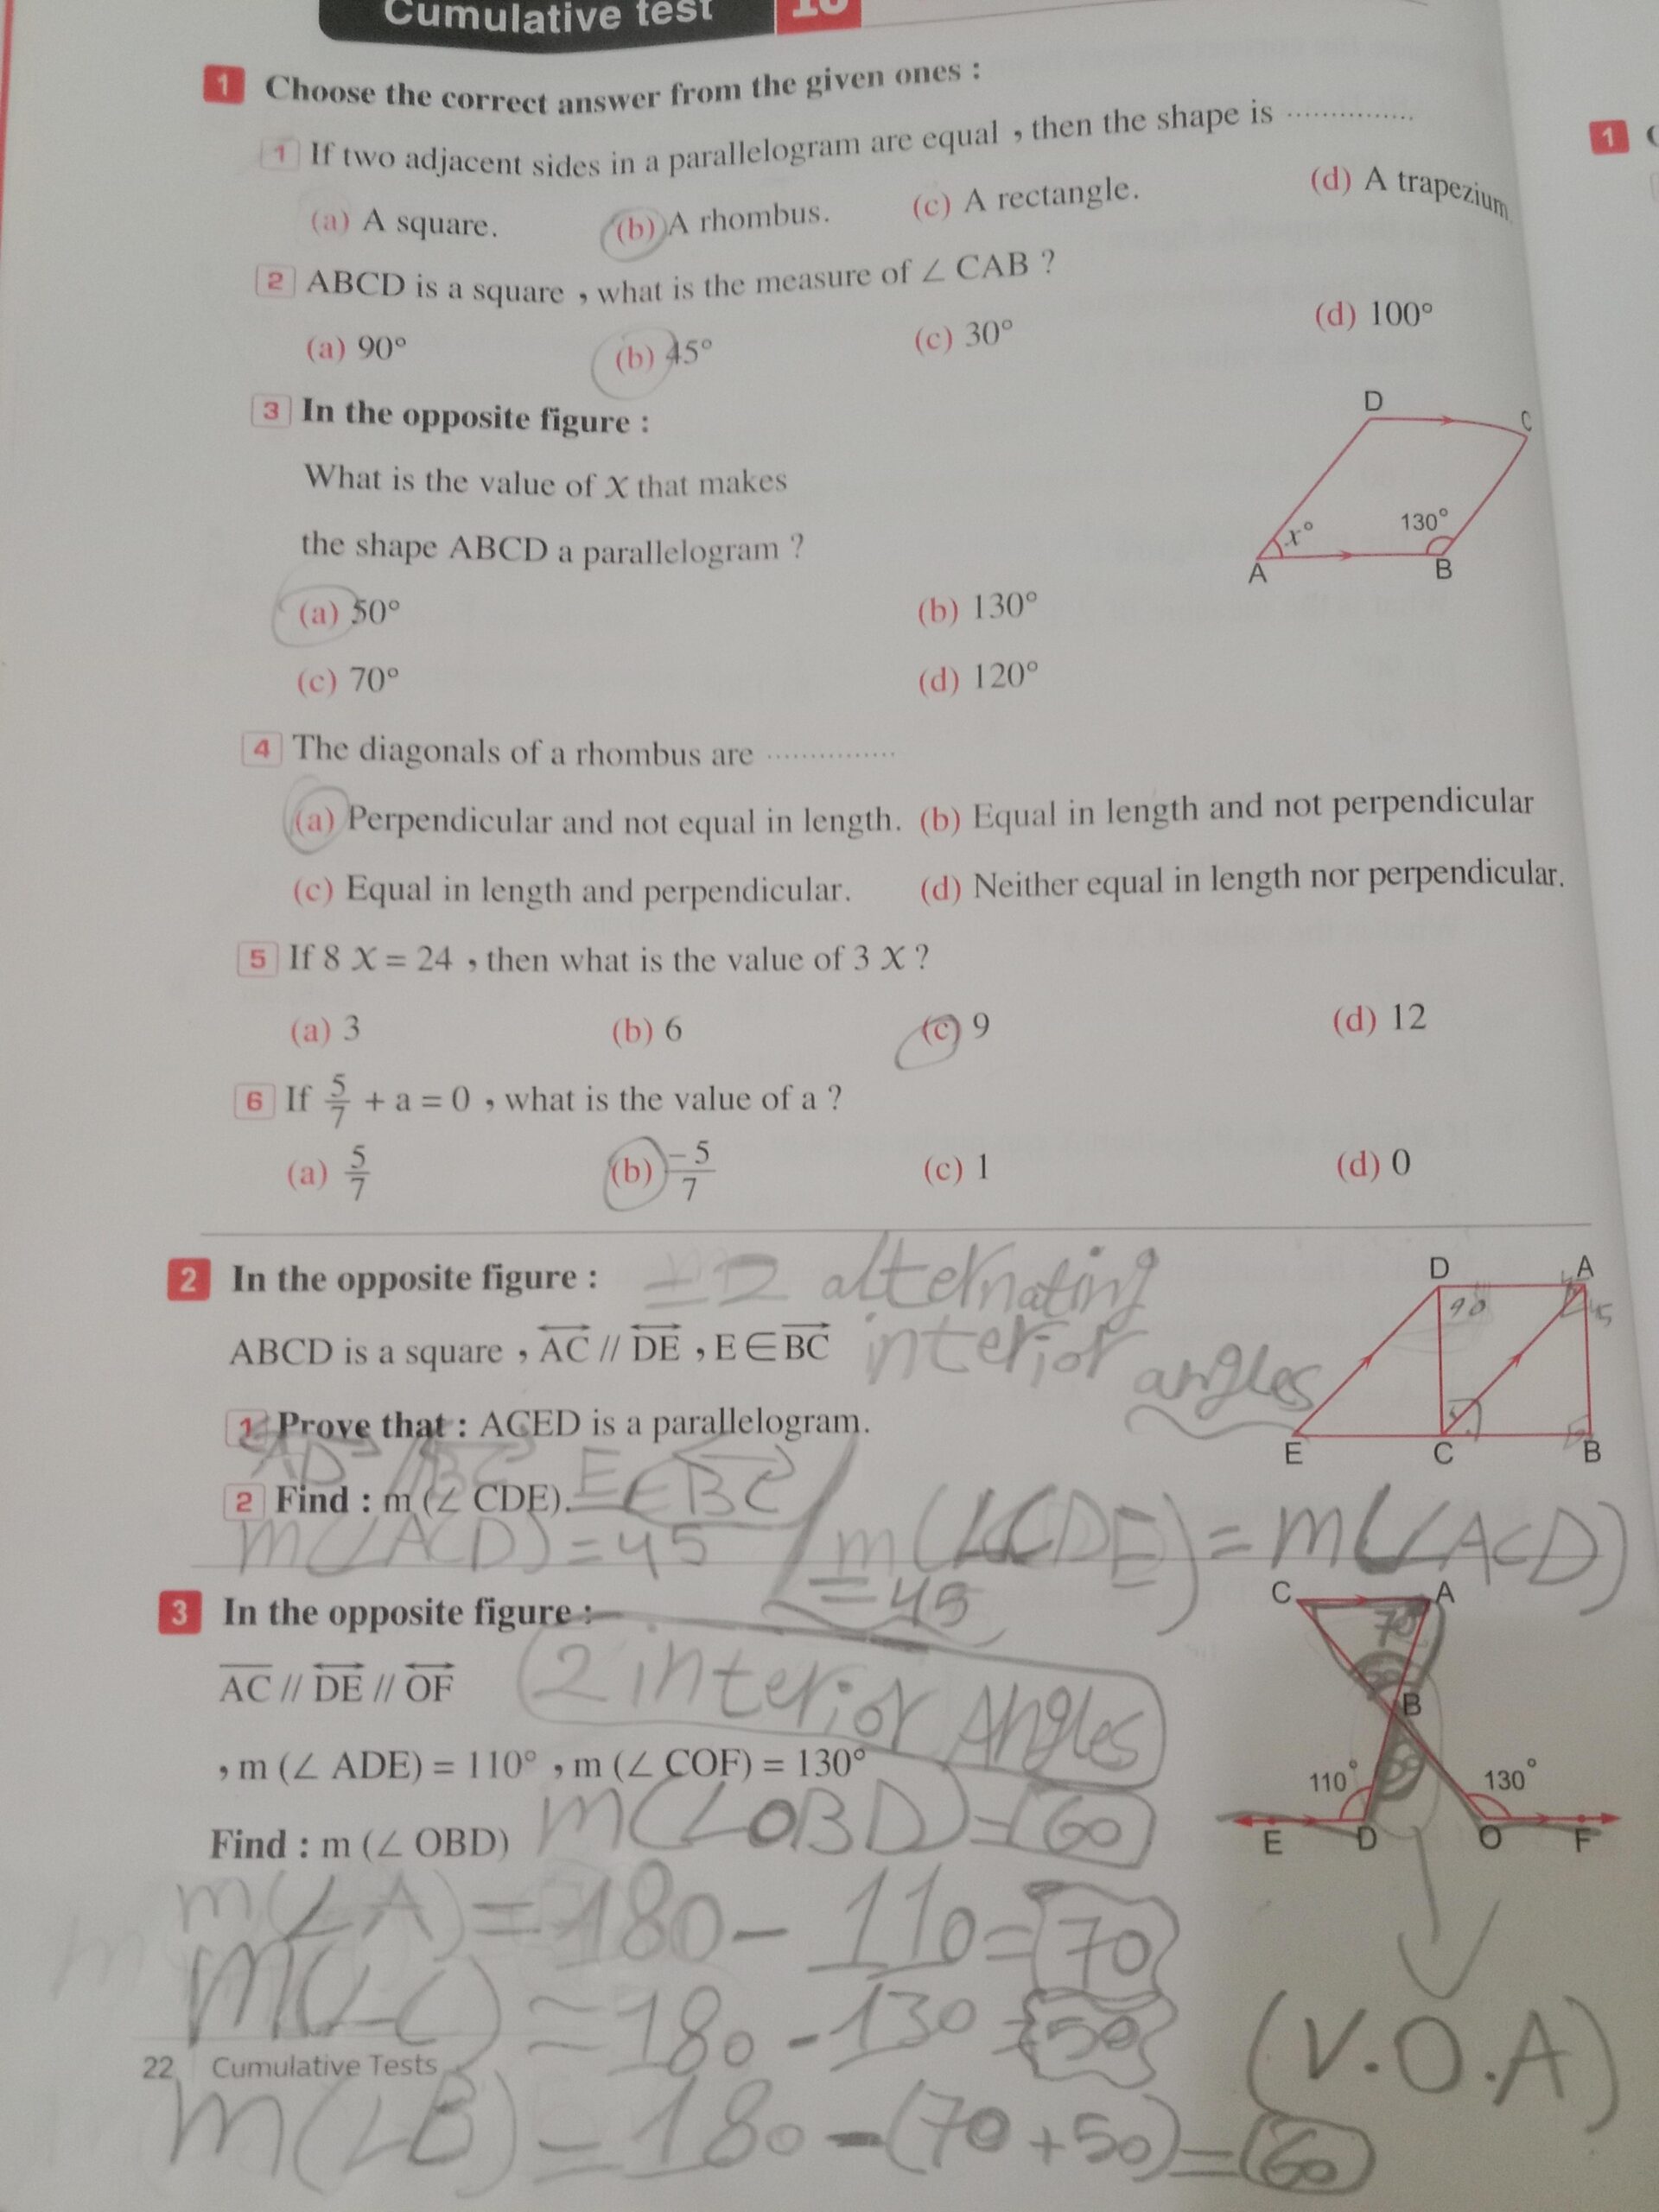 Cumulative test 10
1 Choose the correct answer from the given ones :
1 If two adjacent sides in a parallelogram are equal , then the shape is ...............
(a) A square. (b) A rhombus. (c) A rectangle. (d) A trapezium.
2 ABCD is a square , what is the measure of ∠ CAB ?
(a) 90° (b) 45° (c) 30° (d) 100°
3 In the opposite figure :
What is the value of X that makes
the shape ABCD a parallelogram ?
(a) 50° (b) 130°
(c) 70° (d) 120°
D C
x° 130°
A B
4 The diagonals of a rhombus are ...............
(a) Perpendicular and not equal in length. (b) Equal in length and not perpendicular
(c) Equal in length and perpendicular. (d) Neither equal in length nor perpendicular.
5 If 8 X = 24 , then what is the value of 3 X ?
(a) 3 (b) 6 (c) 9 (d) 12
6 If 5/7 + a = 0 , what is the value of a ?
(a) 5/7 (b) -5/7 (c) 1 (d) 0
2 In the opposite figure :
2 alternating
interior angles
ABCD is a square , AC // DE , E ∈ BC
1 Prove that : ACED is a parallelogram.
AD // BC E ∈ BC
2 Find : m (∠ CDE).
m(∠ACD) = 45
m(∠CDE) = m(∠ACD)
= 45
D A
90 45
E C B
3 In the opposite figure :
2 interior Angles
AC // DE // OF
, m (∠ ADE) = 110° , m (∠ COF) = 130°
Find : m (∠ OBD)
m(∠OBD) = 60
C A
70
B
110° 130°
E D O F
m(∠A) = 180 - 110 = 70
m(∠C) = 180 - 130 = 50
(V.O.A)
22 Cumulative Tests
m(∠B) = 180 - (70 + 50) = 60
1